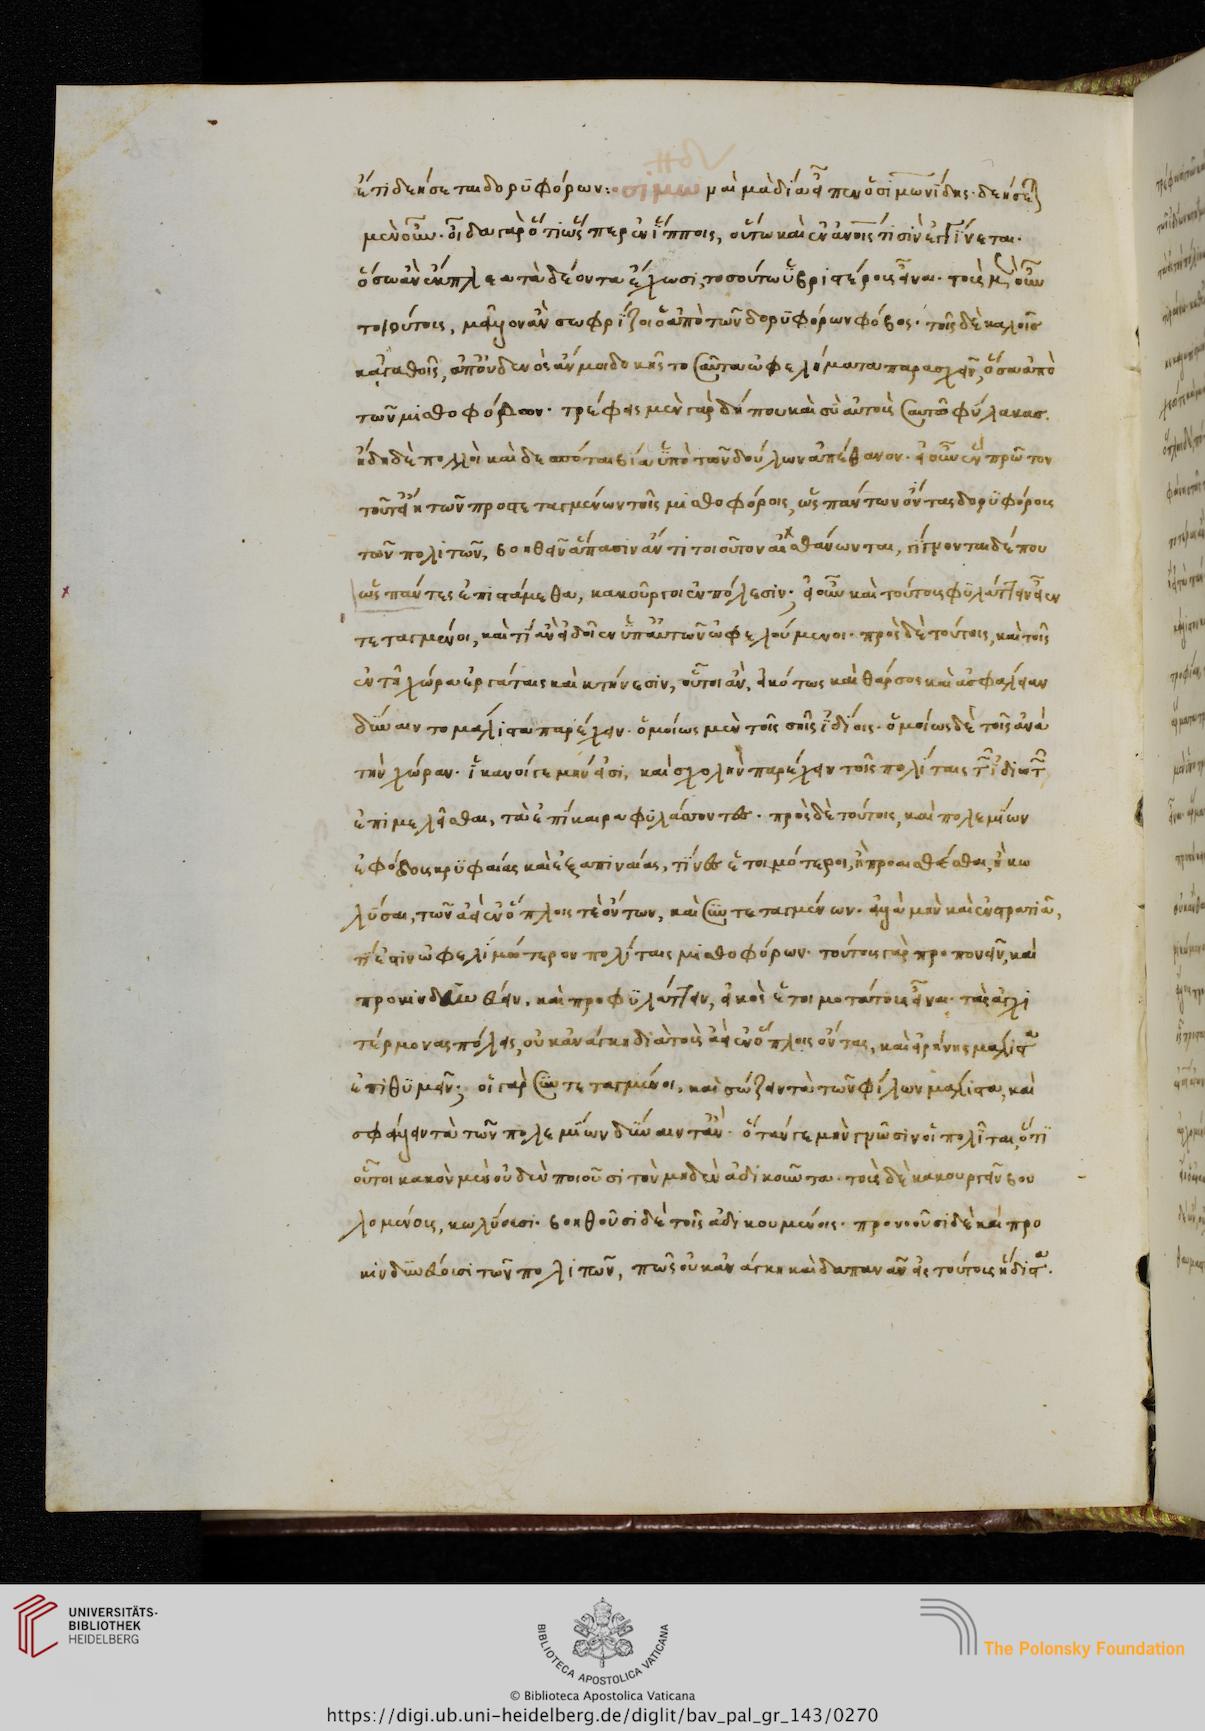 ἔτι δεήσεται δορυφόρων: σιμω ναὶ μὰ δία εἶπεν ὁ σιμωνίδης· δεήσε
μὲν οὖν· οἶδα γὰρ ὅτι ὥσπερ ἐν ἵπποις, οὕτω καὶ ἐν ἀνοις τισὶν ἐγγίνεται·
ὅσω ἂν ἔκπλεα τὰ δέοντα ἔχωσι, τοσούτω ὑβριστέροις εἶναι· τοὺς μὲν οὖν
τοιούτους, μᾶλλον ἂν σωφρίζοι ὁ ἀπὸ τῶν δορυφόρων φόβος· τοῖς δὲ καλοῖς
κἀγαθοῖς, ἀπ' οὐδενὸς ἄν μοι δοκῆς τοσαῦτα ὠφελήματα παρασχεῖν, ὅσα ἀπὸ
τῶν μισθοφόρων· τρέφεις μὲν γὰρ δήπου καὶ σὺ αὐτοὺς σαυτῶ φύλακας·
ἤδη δὲ πολλοὶ καὶ δεσπόται βία ὑπὸ τῶν δούλων ἀπέθανον· εἰ οὖν ἓν πρῶτον
τοῦτ' εἴη τῶν προστεταγμένων τοῖς μισθοφόροις, ὡς πάντων ὄντας δορυφόρους
τῶν πολιτῶν, βοηθεῖν ἅπασιν ἄν τι τοιοῦτον αἰσθάνωνται, γίγνονται δέ που
ὡς πάντες ἐπιστάμεθα, κακοῦργοι ἐν πόλεσιν· εἰ οὖν καὶ τούτους φυλάττειν εἶεν
τεταγμένοι, καὶ τί ἂν εἰδοῖεν ὑπ' αὐτῶν ὠφελούμενοι· πρὸς δὲ τούτοις, καὶ τοῖς
ἐν τῆ χώρα ἐργάταις καὶ κτήνεσιν, οὗτοι ἂν, εἰκότως καὶ θάρσος καὶ ἀσφάλειαν
δύναιντο μάλιστα παρέχειν· ὁμοίως μὲν τοῖς σοῖς ἰδίοις· ὁμοίως δὲ τοῖς ἀνὰ
τὴν χώραν· ἱκανοί γε μήν εἰσι, καὶ σχολὴν παρέχειν τοῖς πολίταις τῶν ἰδίων
ἐπιμελεῖσθαι, τὰ ἐπίκαιρα φυλάσσοντες· πρὸς δὲ τούτοις, καὶ πολεμίων
ἐφόδους κρυφαίας καὶ ἐξαπιναίας, τίνες ἑτοιμότεροι, ἢ προαισθέσθαι, ἢ κω
λῦσαι, τῶν ἀεὶ ἐν ὅπλοις τε ὄντων, καὶ συντεταγμένων· ἀλλὰ μὴν καὶ ἐν στρατιᾶ,
τί ἐστιν ὠφελιμώτερον πολίταις μισθοφόρων· τούτους γὰρ προπονεῖν, καὶ
προκινδυνεύειν, καὶ προφυλάττειν, εἰκὸς ἑτοιμοτάτους εἶναι· τὰς ἀγχι
τέρμονας πόλεις, οὐκ ἀνάγκη διὰ τοὺς ἀεὶ ἐν ὅπλοις ὄντας, καὶ εἰρήνης μάλιστα
ἐπιθυμεῖν; οἱ γὰρ συντεταγμένοι, καὶ σώζειν τὰ τῶν φίλων μάλιστα, καὶ
σφάλλειν τὰ τῶν πολεμίων δύναιντ' ἄν· ὅταν γε μὴν γνῶσιν οἱ πολῖται, ὅτι
οὗτοι κακὸν μὲν οὐδὲν ποιοῦσι τὸν μηδὲν ἀδικοῦντα· τοὺς δὲ κακουργεῖν βου
λομένους, κωλύουσι· βοηθοῦσι δὲ τοῖς ἀδικουμένοις· προνοοῦσι δὲ καὶ προ
κινδυνεύουσι τῶν πολιτῶν, πῶς οὐκ ἀνάγκη καὶ δαπανᾶν εἰς τούτους ἥδιστα·
UNIVERSITÄTS-
BIBLIOTHEK
HEIDELBERG
BIBLIOTECA APOSTOLICA VATICANA
The Polonsky Foundation
© Biblioteca Apostolica Vaticana
https://digi.ub.uni-heidelberg.de/diglit/bav_pal_gr_143/0270